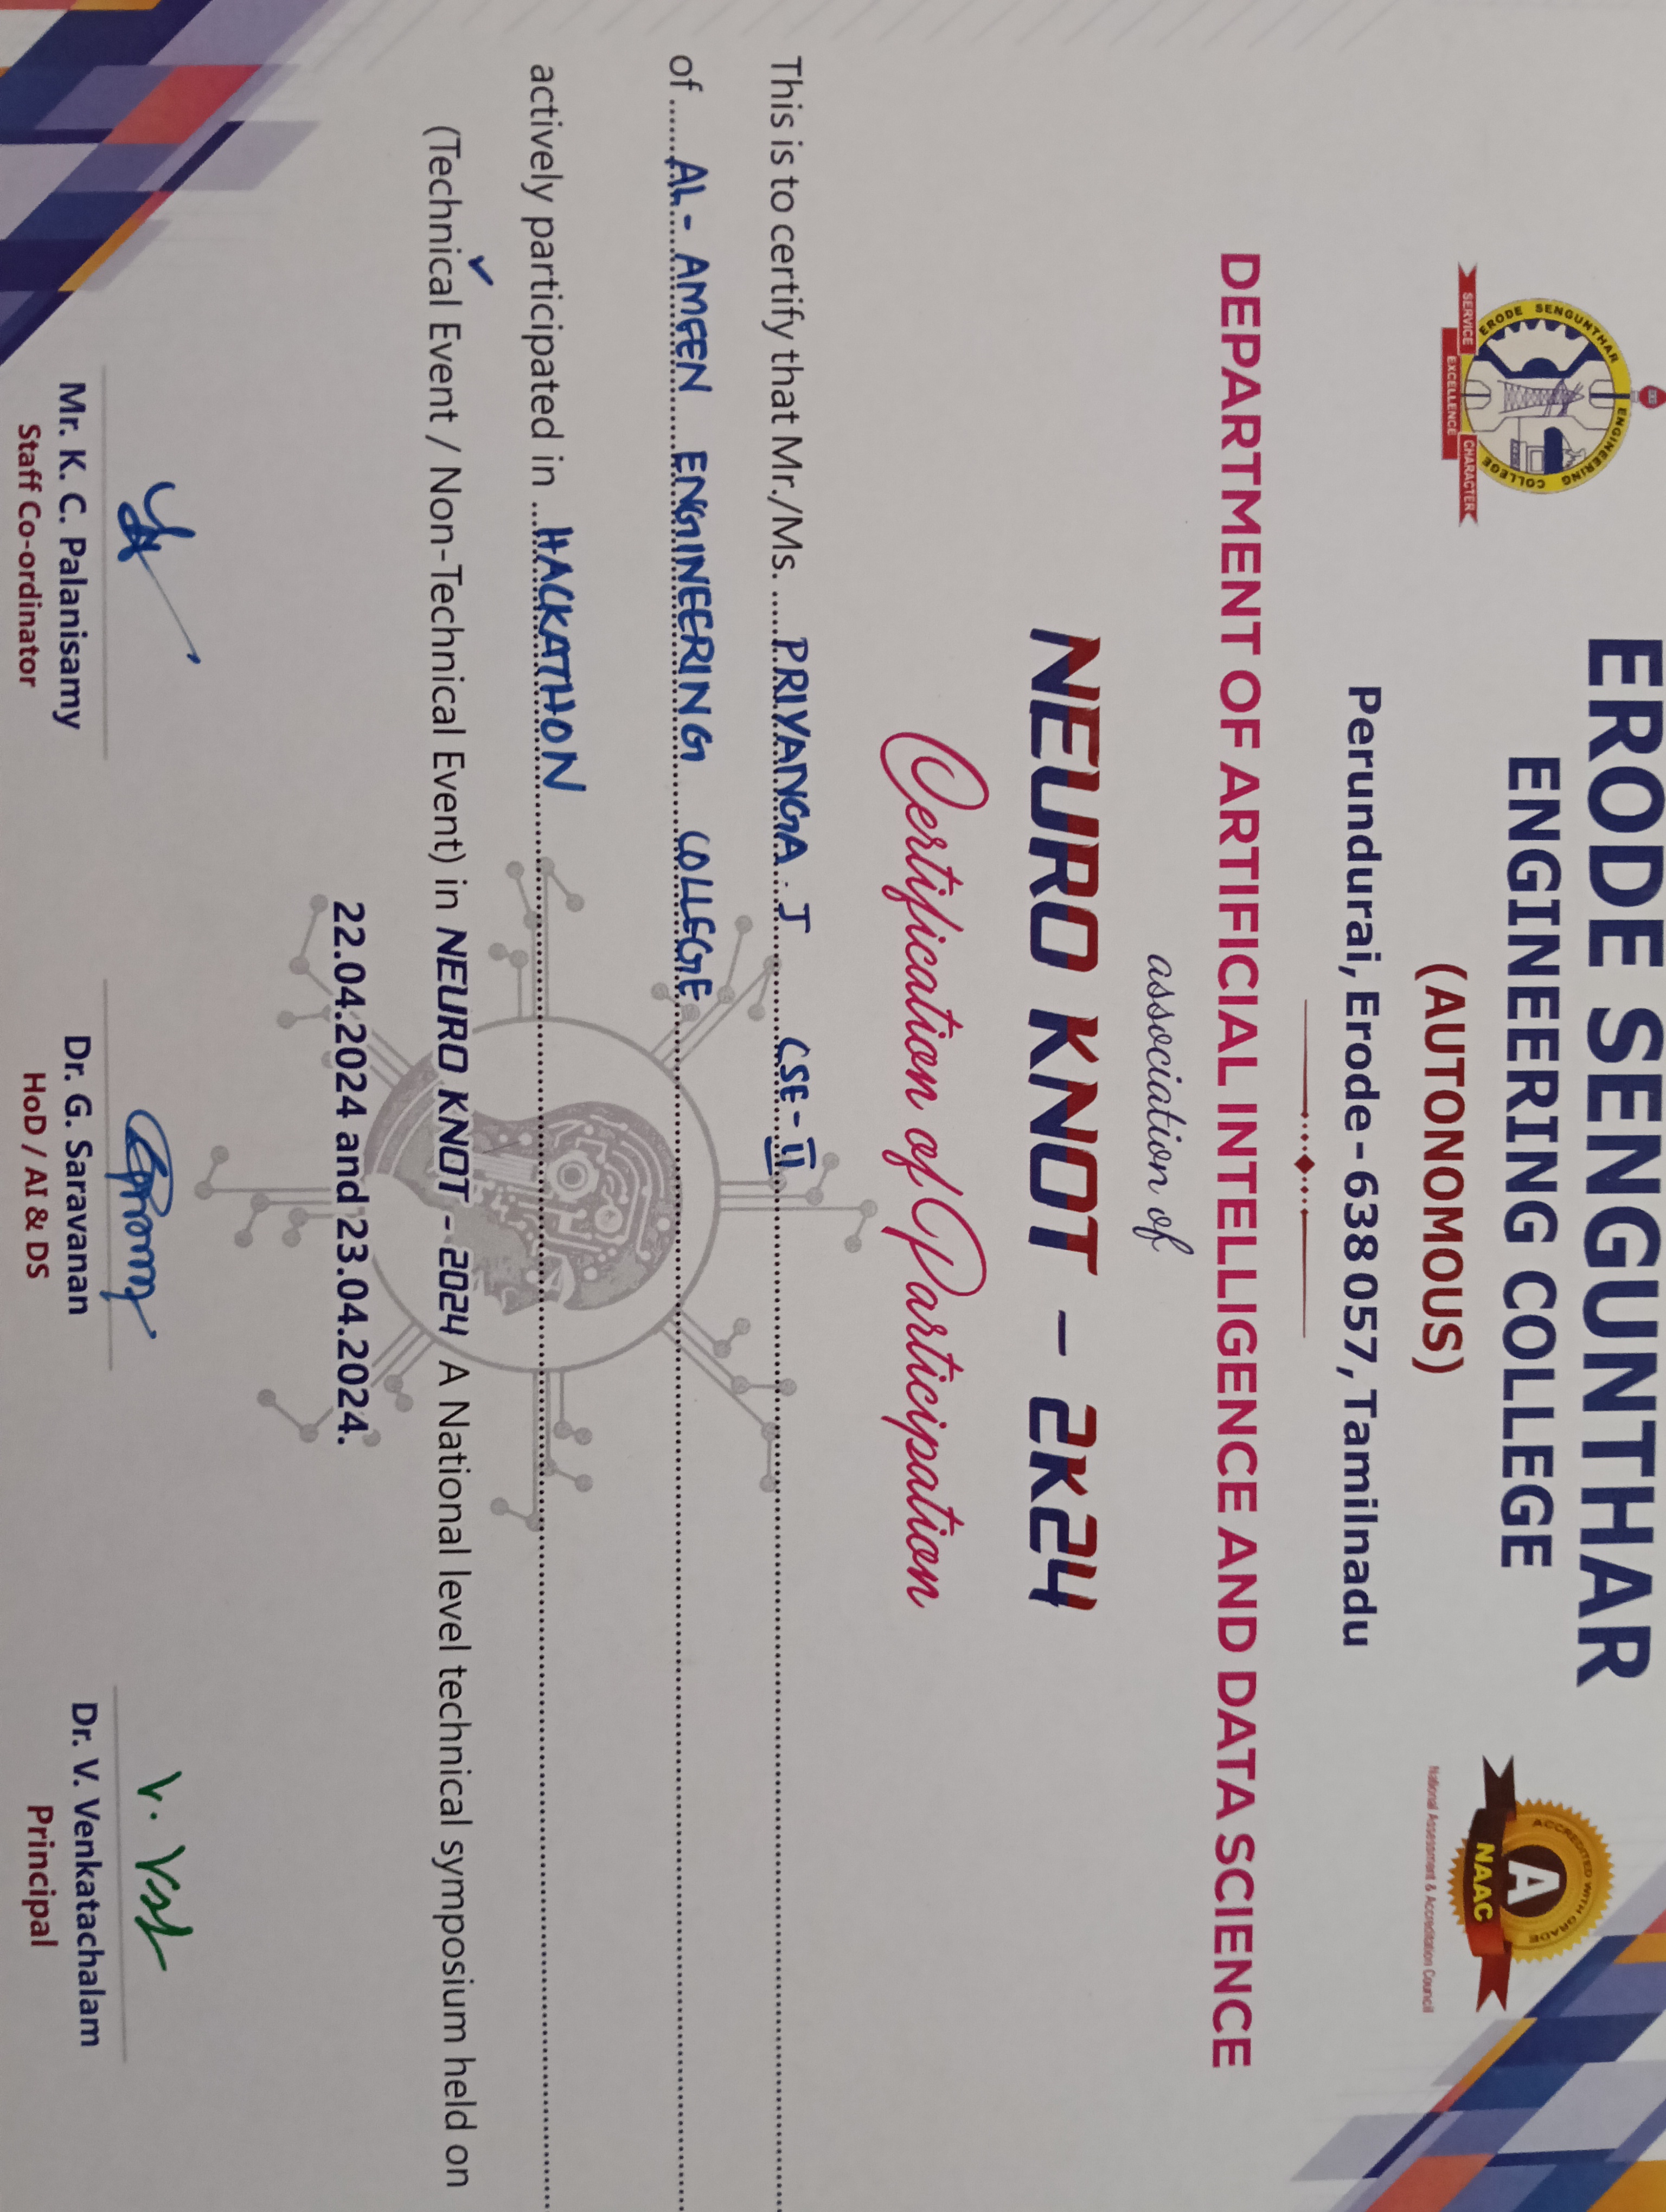 ERODE SENGUNTHAR
ENGINEERING COLLEGE
(AUTONOMOUS)
Perundurai, Erode - 638 057, Tamilnadu
ERODE SENGUNTHAR ENGINEERING COLLEGE
SERVICE
EXCELLENCE
CHARACTER
ACCREDITED WITH GRADE
A
NAAC
National Assessment & Accreditation Council
DEPARTMENT OF ARTIFICIAL INTELLIGENCE AND DATA SCIENCE
association of
NEURO KNOT - 2K24
Certification of Participation
This is to certify that Mr./Ms. PRIYANGA. J CSE-II
of AL-AMEEN ENGINEERING COLLEGE
actively participated in HACKATHON
(Technical Event / Non-Technical Event) in NEURO KNOT - 2024 A National level technical symposium held on
22.04.2024 and 23.04.2024.
Mr. K. C. Palanisamy
Staff Co-ordinator
Dr. G. Saravanan
HoD / AI & DS
V. 
Dr. V. Venkatachalam
Principal